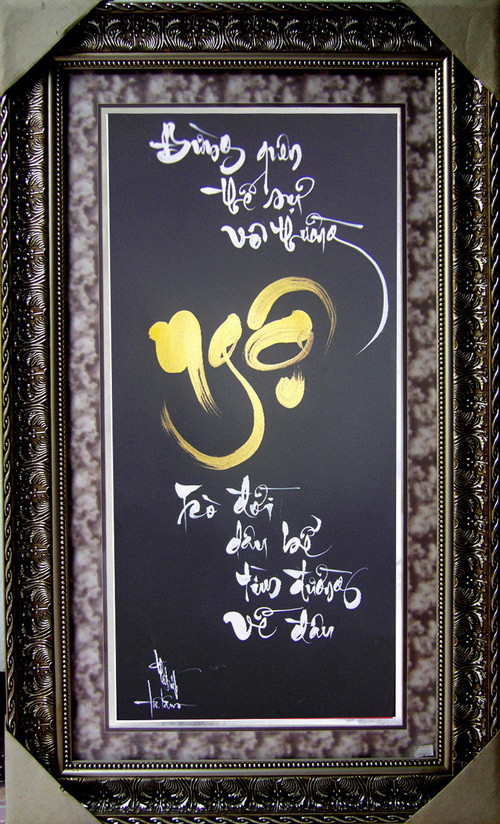 Bừng quên
thế sự
vô thường
Ngộ
Trò đời
dâu bể
tìm đường
về đâu